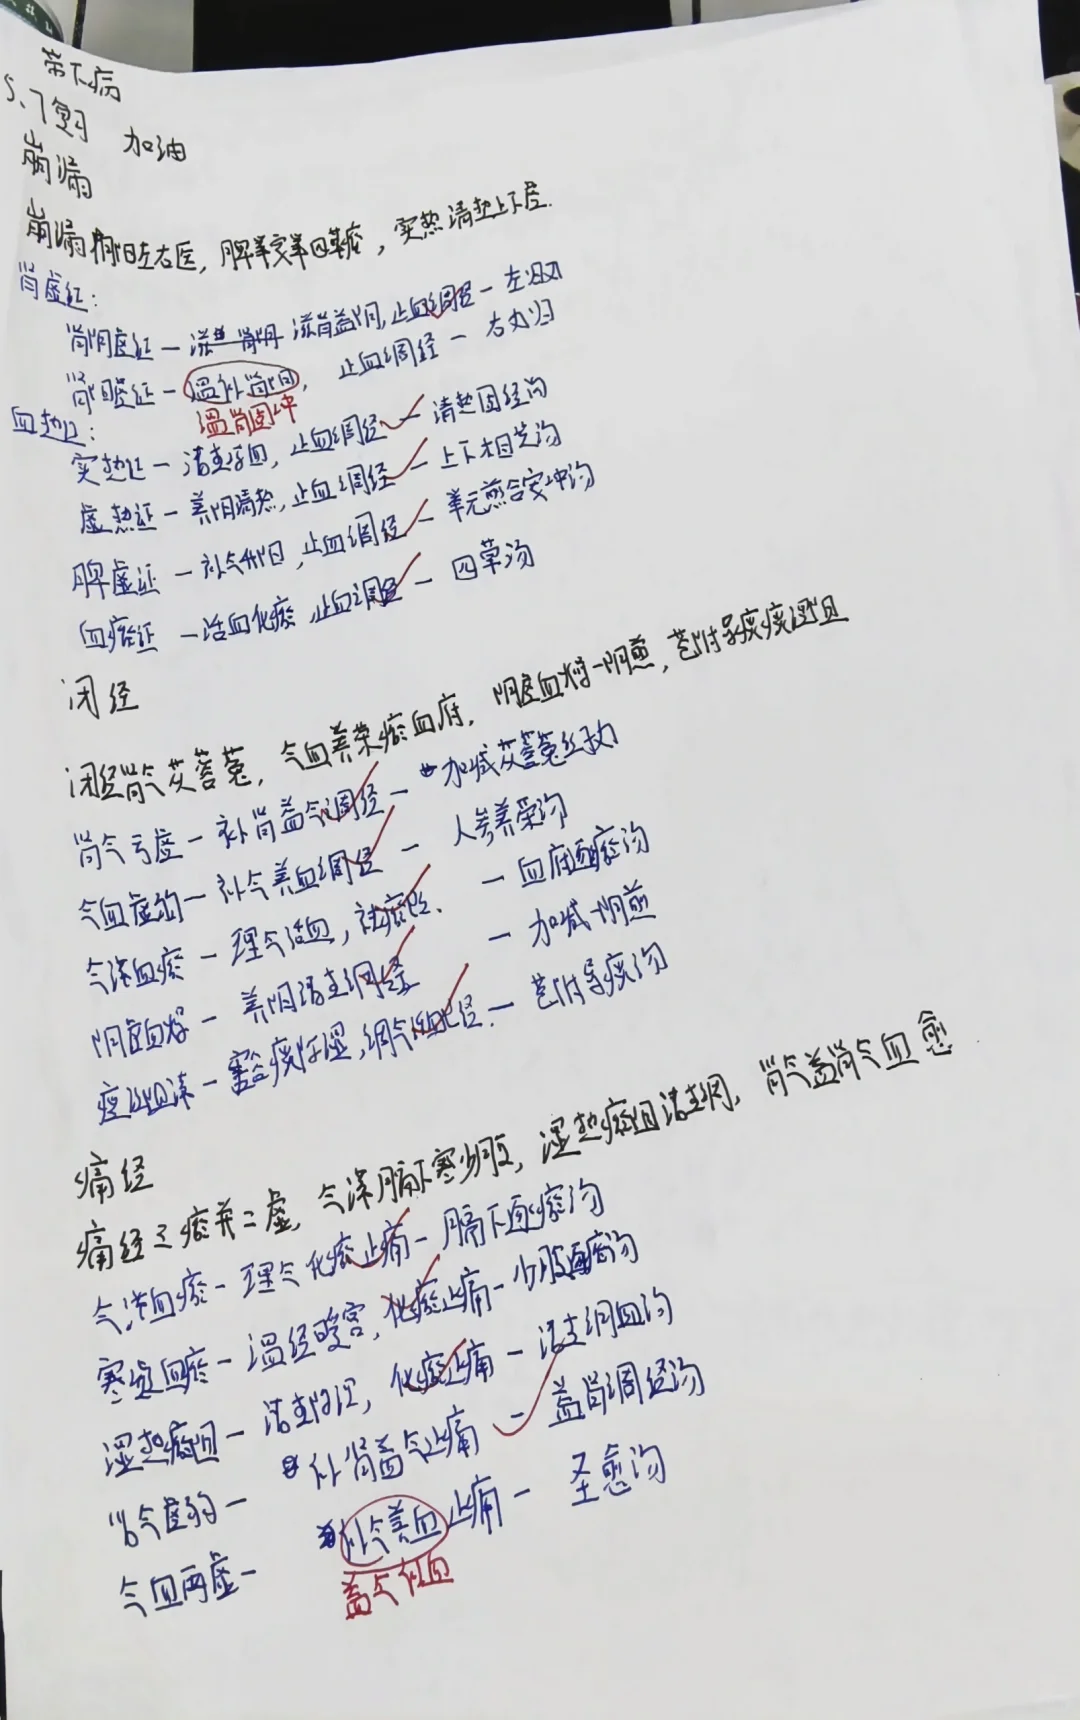 带下病
5、丁复习 加油
崩漏
崩漏 阴阳左右医，脾单突单四草瘀，实热清热上下居.
肾虚证：
肾阴虚证 — 滋肾益阴，止血调经 — 左归丸
肾阳虚证 — 温补肾阳，止血调经 — 右丸归
温肾固冲
血热证：
实热证 — 清热凉血，止血调经 — 清热固经汤
虚热证 — 养阴清热，止血调经 — 上下相资汤
脾虚证 — 补气升阳，止血调经 — 举元煎合安冲汤
血瘀证 — 活血化瘀，止血调经 — 四草汤
闭经
闭经肾气苁蓉菟，气血养荣瘀血府，阴虚血燥一阴煎，苍附导痰痰湿阻
肾气亏虚 — 补肾益气调经 — 加减苁蓉菟丝丸
气血虚弱 — 补气养血调经 — 人参养荣汤
气滞血瘀 — 理气活血，祛瘀 — 血府逐瘀汤
阴虚血燥 — 养阴清热调经 — 加减一阴煎
痰湿阻滞 — 豁痰除湿，调气活血 经 — 苍附导痰汤
痛经
痛经三瘀并二虚，气滞膈下寒少腹，湿热瘀阻清热调，肾气益肾气血愈
气滞血瘀 — 理气化瘀止痛 — 膈下逐瘀汤
寒凝血瘀 — 温经暖宫，化瘀止痛 — 少腹逐瘀汤
湿热瘀阻 — 清热除湿，化瘀止痛 — 清热调血汤
肾气虚弱 — 补肾益气止痛 — 益肾调经汤
气血两虚 — 补气养血止痛 — 圣愈汤
益气补血